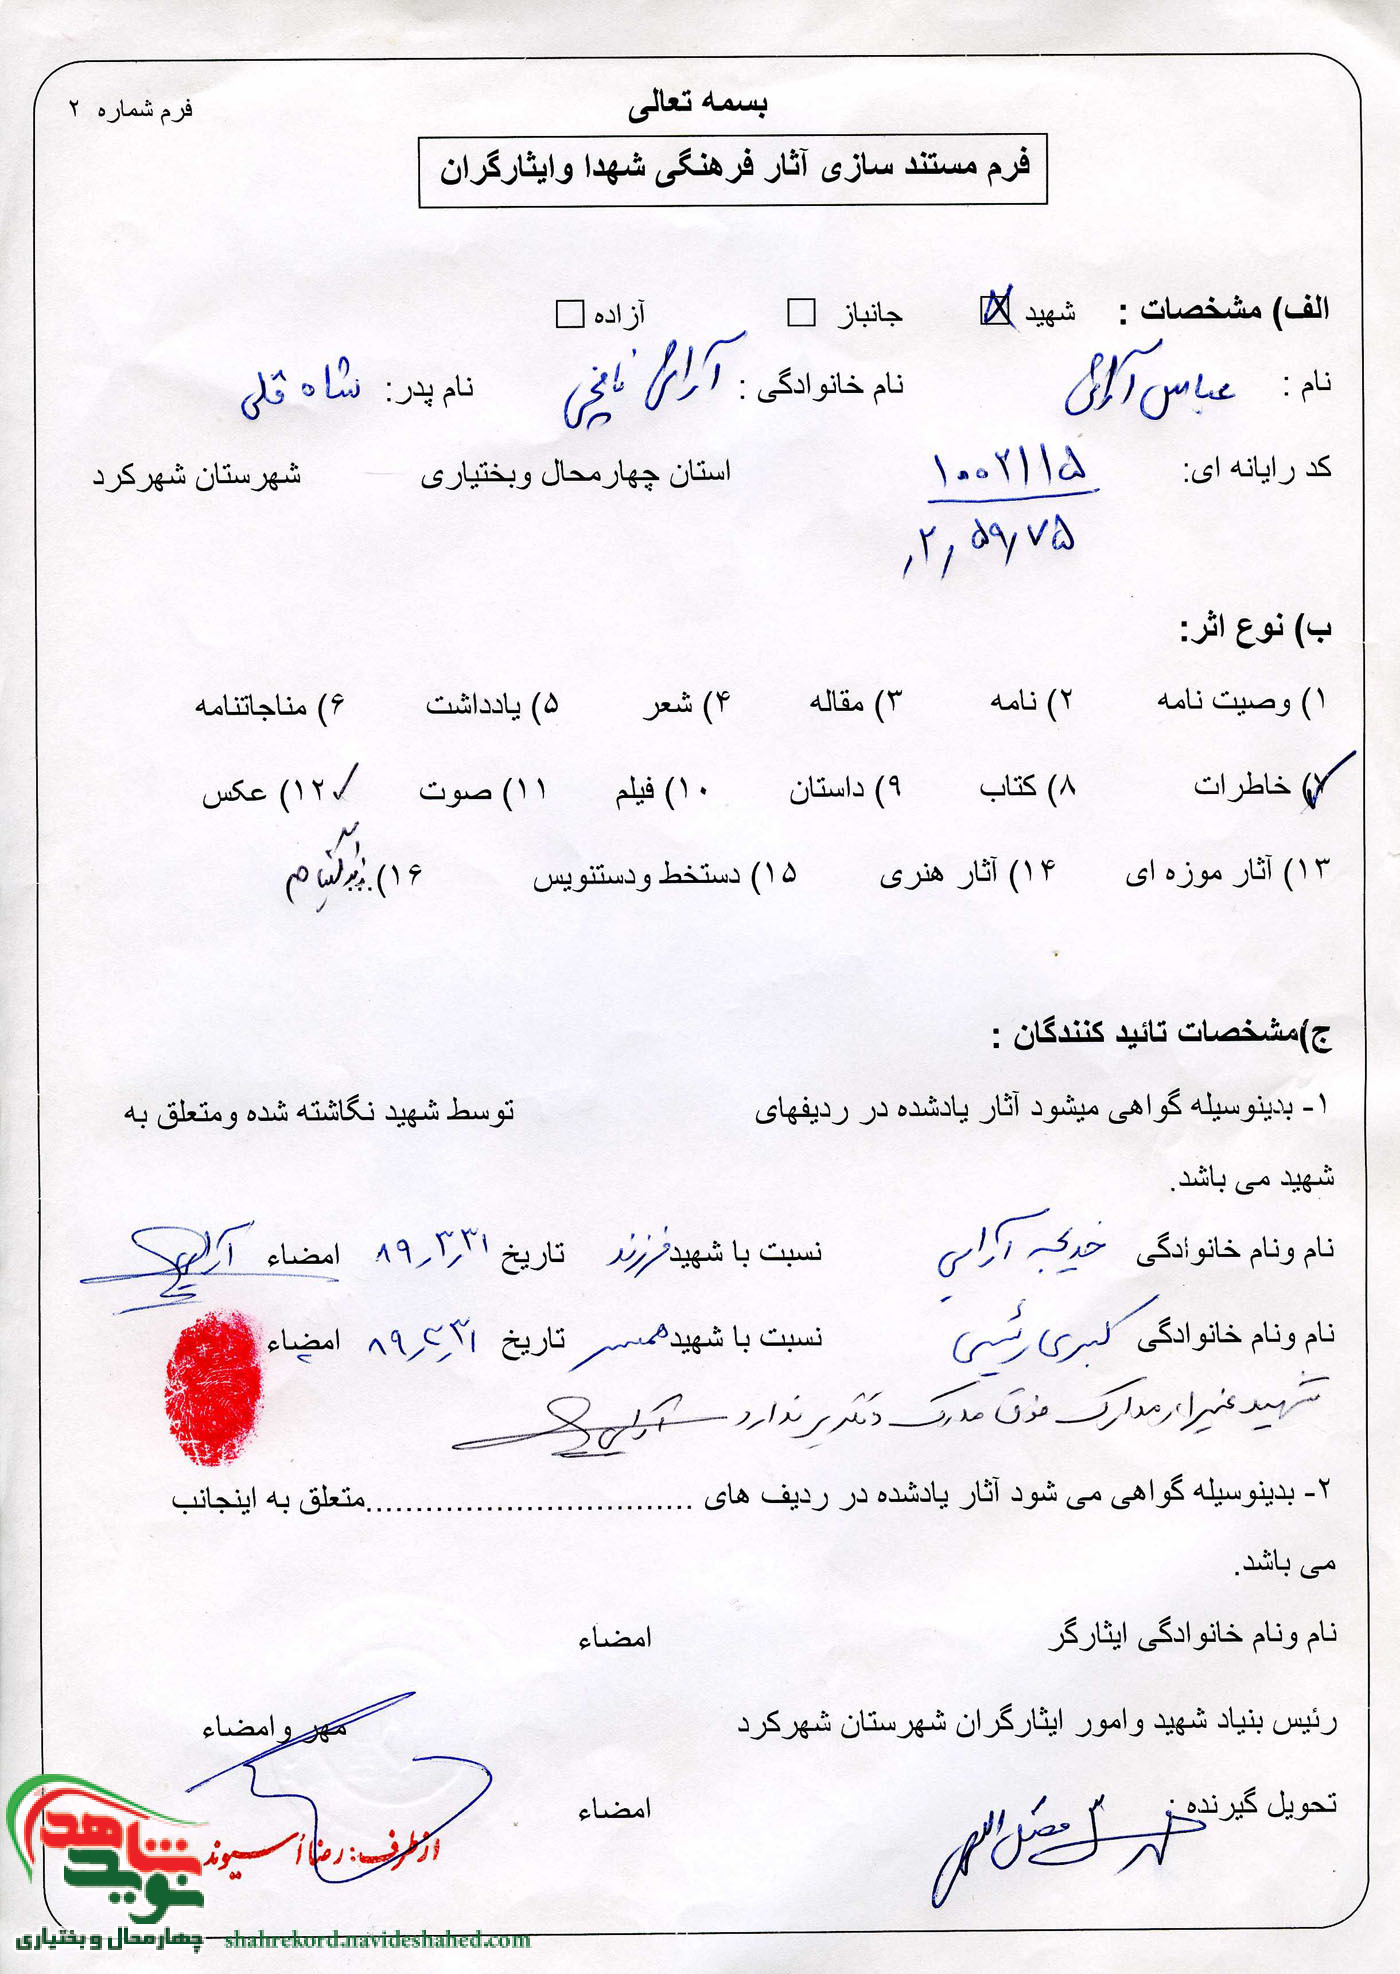 بسمه تعالی
فرم شماره ۲
فرم مستند سازی آثار فرهنگی شهدا وایثارگران
الف) مشخصات : شهید ☒ جانباز ☐ آزاده ☐
نام : عباس آرامی نام خانوادگی : نافچی نام پدر: شاه قلی
کد رایانه ای: ۱۰۰۲۱۱۵ استان چهارمحال وبختیاری شهرستان شهرکرد
ب) نوع اثر:
۱) وصیت نامه ۲) نامه ۳) مقاله ۴) شعر ۵) یادداشت ۶) مناجاتنامه
۷) خاطرات ۸) کتاب ۹) داستان ۱۰) فیلم ۱۱) صوت ۱۲) عکس
۱۳) آثار موزه ای ۱۴) آثار هنری ۱۵) دستخط ودستنویس ۱۶)
ج)مشخصات تائید کنندگان :
۱- بدینوسیله گواهی میشود آثار یادشده در ردیفهای توسط شهید نگاشته شده ومتعلق به
شهید می باشد.
نام ونام خانوادگی خدیجه آرامی نسبت با شهید فرزند تاریخ ۸۹٫۳٫۳۱ امضاء
نام ونام خانوادگی کبری رئیسی نسبت با شهید همسر تاریخ ۸۹٫۳٫۳۱ امضاء
شهید غیر از مدارک فوق مدرک دیگر ندارد
۲- بدینوسیله گواهی می شود آثار یادشده در ردیف های ................................متعلق به اینجانب
می باشد.
نام ونام خانوادگی ایثارگر امضاء
رئیس بنیاد شهید وامور ایثارگران شهرستان شهرکرد مهر وامضاء
تحویل گیرنده : فضل اللهی امضاء
ازطرف: رضا اسیوند
نوید شاهد
چهارمحال و بختیاری
shahrekord.navideshahed.com